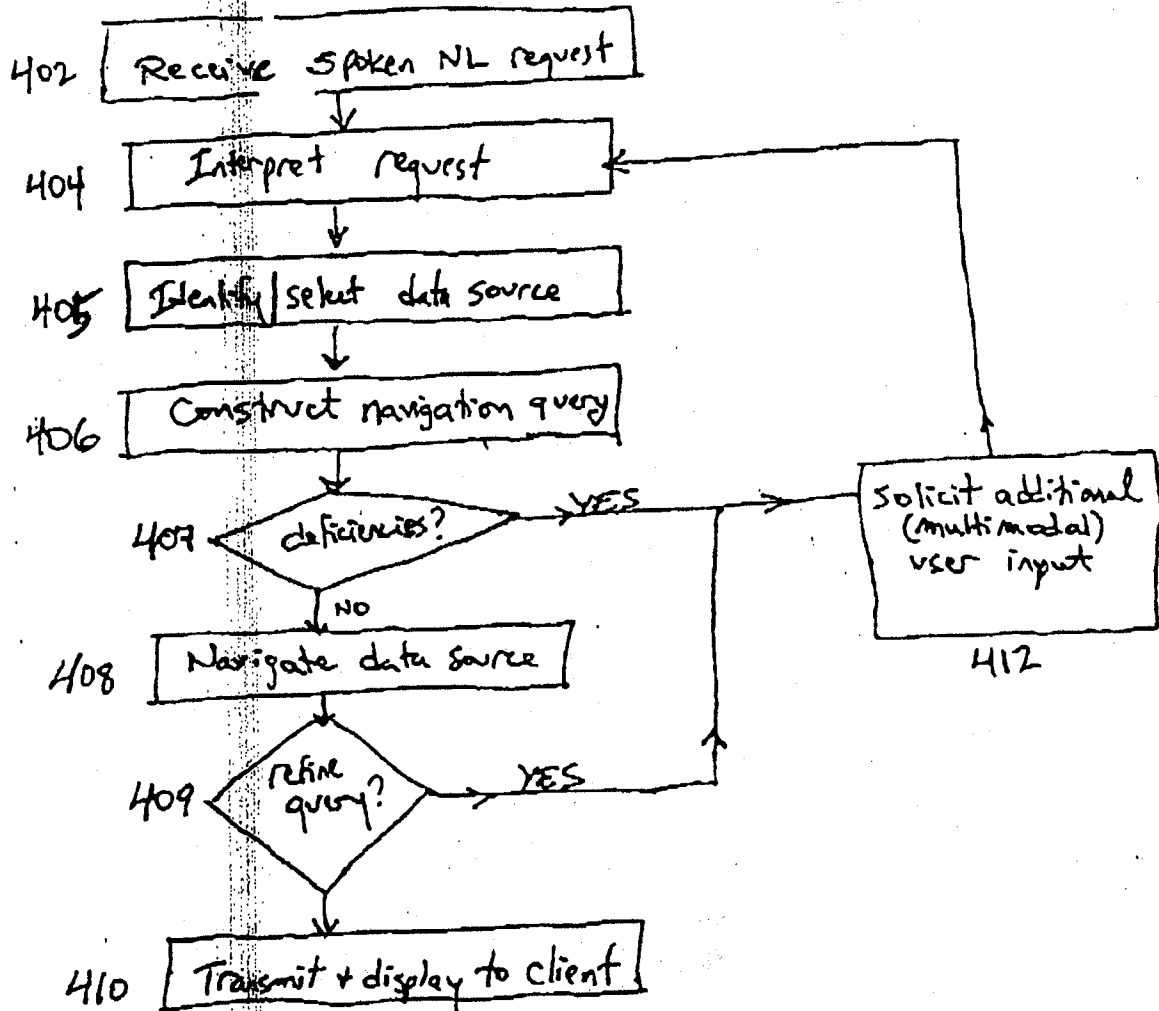 402 Receive Spoken NL request
404 Interpret request
405 Identify/select data source
406 Construct navigation query
407 deficiencies? YES
NO
solicit additional
(multimodal)
user input
412
408 Navigate data source
409 refine
query? YES
410 Transmit + display to client